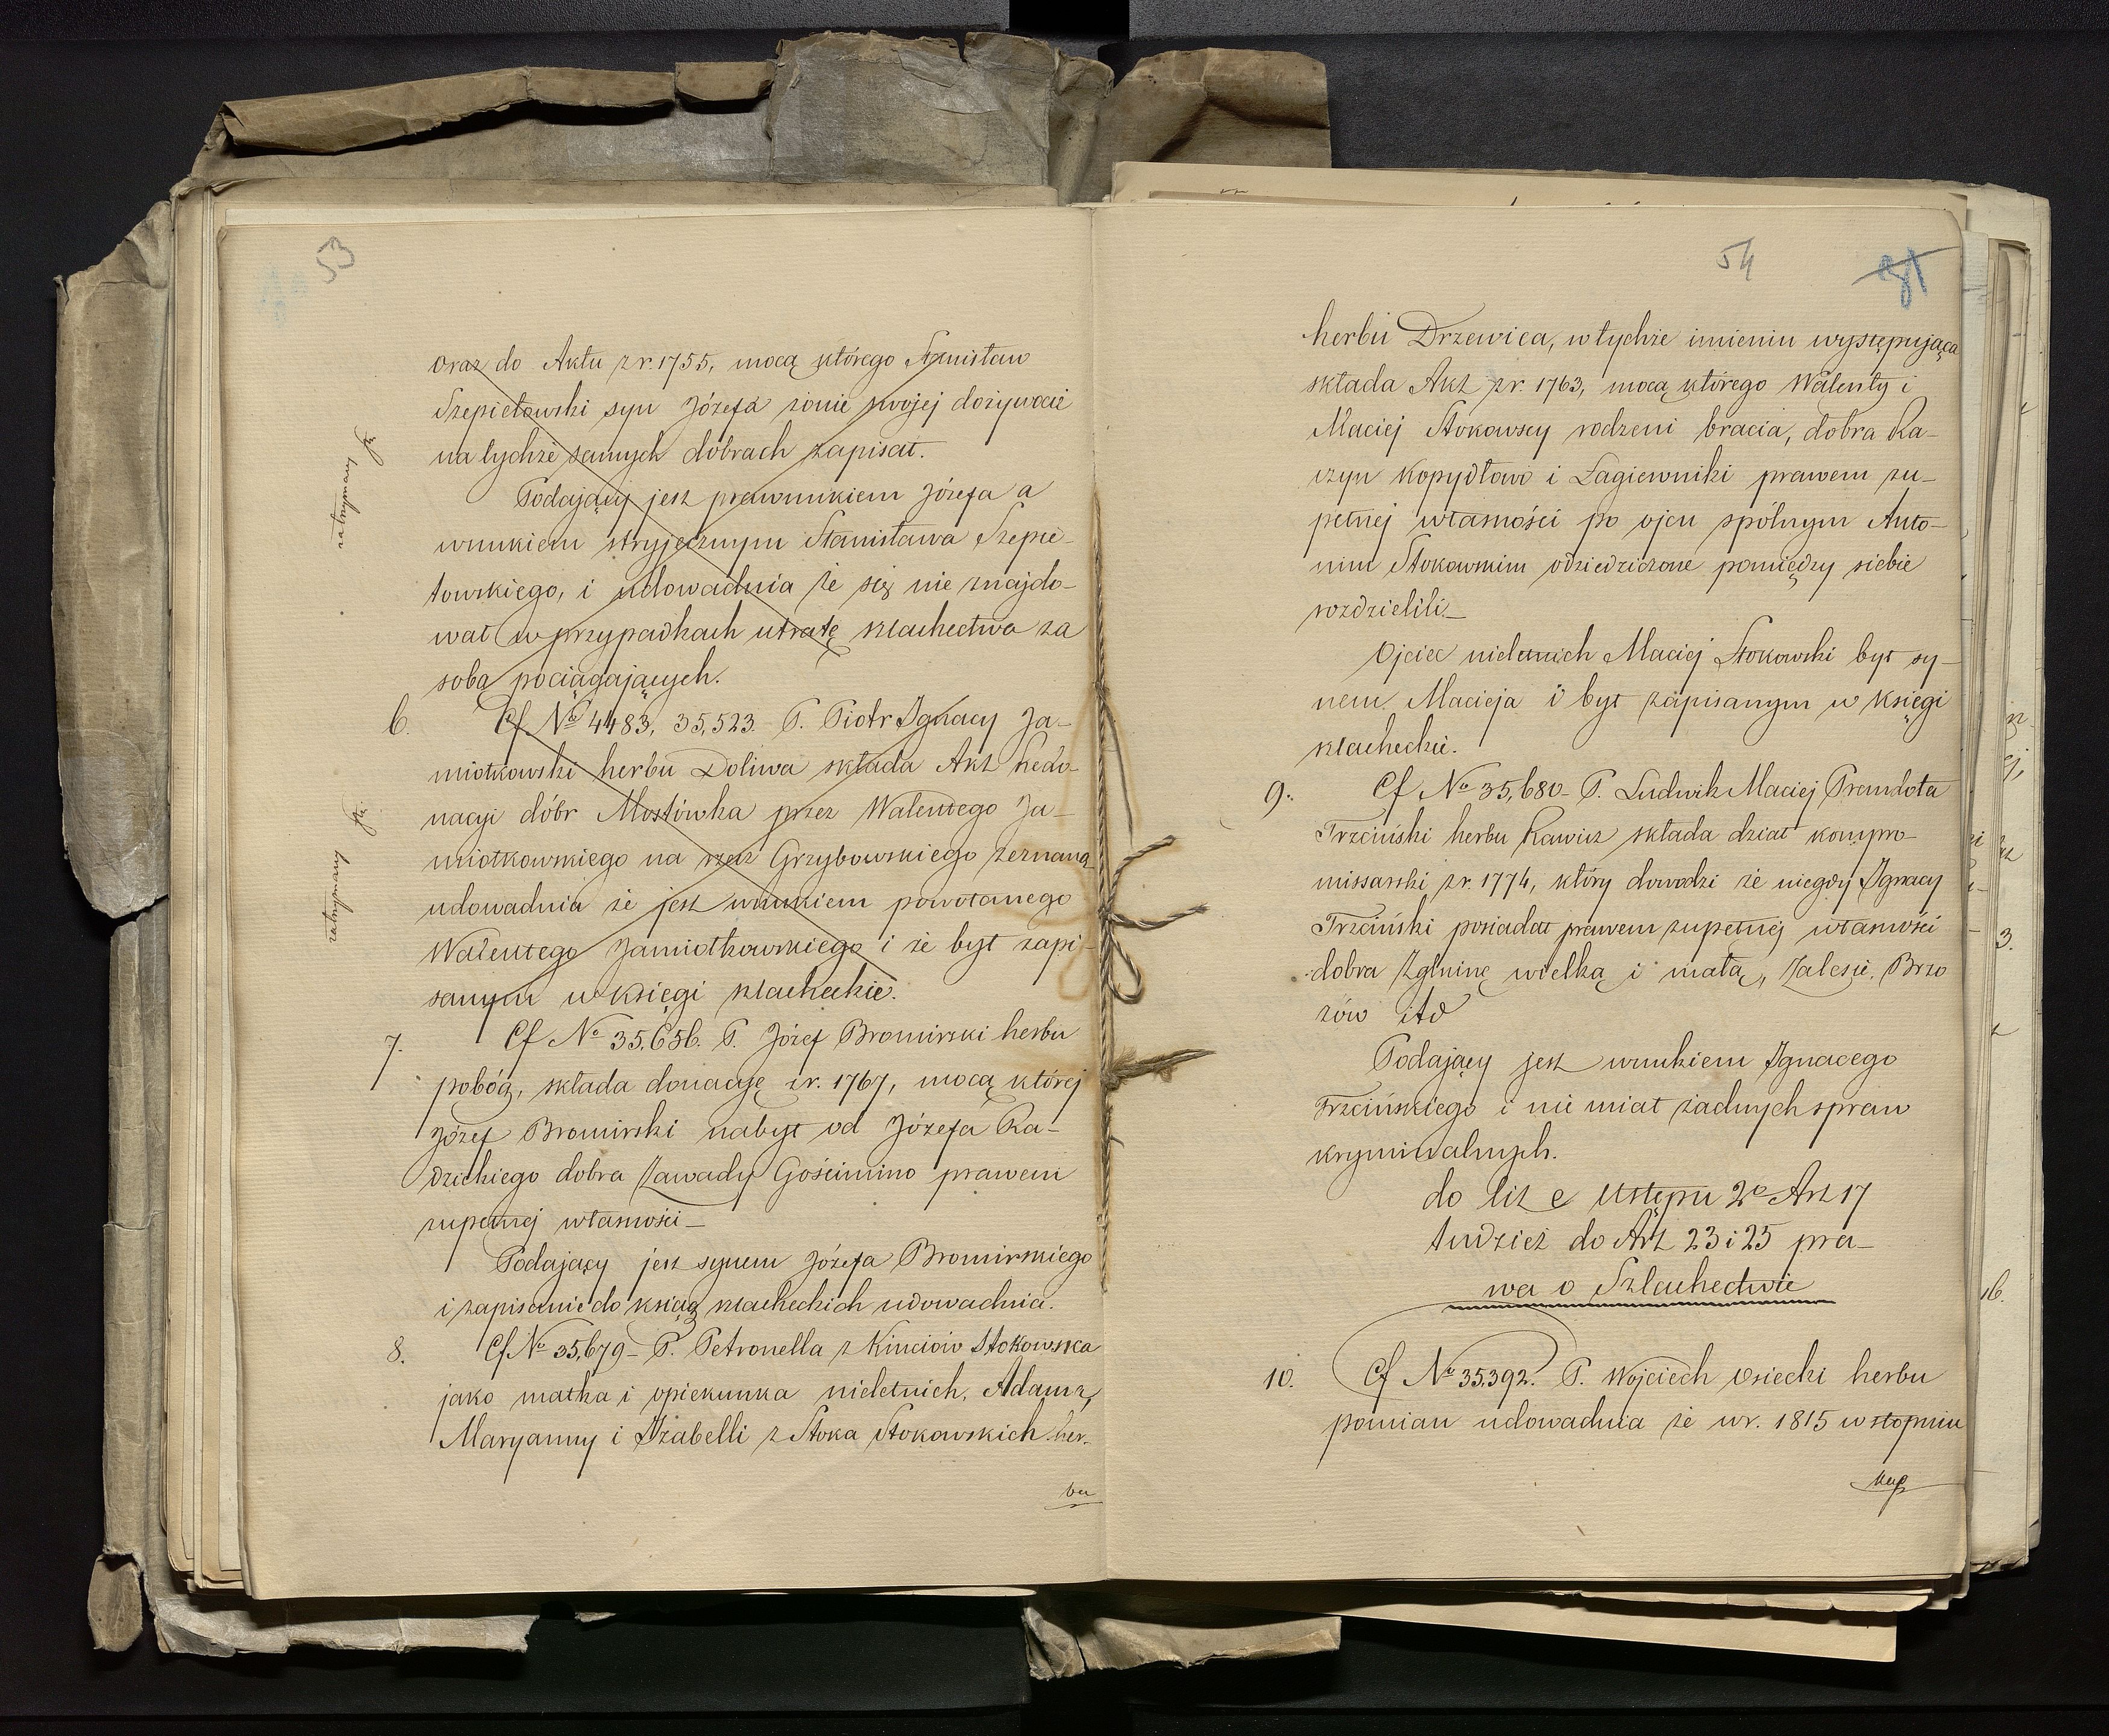 53
oraz do Aktu z r. 1755, mocą którego Stanisław
Szepietowski syn Józefa żonie swojej dożywocie
na tychże samych dobrach zapisał.
Podający jest prawnukiem Józefa a
wnukiem stryjecznym Stanisława Szepie-
towskiego, i udowadnia że się nie znajdo-
wał w przypadkach utratę szlachectwa za
sobą pociągających.
zatrzymany
6. Cf No 4483, 35,523. P. Piotr Ignacy Ja-
miołkowski herbu Doliwa składa Akt
nacyi dóbr Mostówka przez Walentego Ja-
miołkowskiego na rzecz Grzybowskiego zeznaną
udowadnia że jest wnukiem powołanego
Walentego Jamiołkowskiego i że był zapi-
sanym w księgi szlacheckie.
zatrzymany
7. Cf No 35,656. P. Józef Bromirski herbu
pobóg, składa donacyę z r. 1767, mocą której
Józef Bromirski nabył od Józefa Ra-
dzickiego dobra Zawady Gościmino prawem
zupełnej własności_
Podający jest synem Józefa Bromirskiego
i zapisanie do ksiąg szlacheckich udowadnia.
8. Cf No 35,679_ P. Petronella z Kinciów Stokowska
jako matka i opiekunka nieletnich, Adama,
Maryanny i Izabelli z Stoka Stokowskich her-
bu
54
herbu Drzewica, w tychże imieniu występująca
składa Akt z r. 1763, mocą którego Walenty i
Maciej Stokowscy rodzeni bracia, dobra Ka-
czyn Kopydłowo i Łagiewniki prawem zu-
pełnej własności po ojcu spólnym Anto-
nim Stokowskim odziedziczone pomiędzy siebie
rozdzielili._
Ojciec nieletnich Maciej Stokowski był sy-
nem Macieja i był zapisanym w księgi
szlacheckie.
9. Cf No 35,680_ P. Ludwik Maciej Prandota
Trzciński herbu Rawicz składa dział kompro-
missarski z r. 1774, który dowodzi że niegdy Ignacy
Trzciński posiadał prawem zupełnej własności
dobra Zglninę wielką i małą, Zalesie, Brzo
zów itd
Podający jest wnukiem Ignacego
Trzcińskiego i nie miał żadnych spraw
kryminalnych.
do lit e Ustępu 2o Art 17
tudzież do Art 23 i 25 pra-
wa o Szlachectwie
10. Cf No 35,392. P. Wojciech Osiecki herbu
pomian udowadnia że w r. 1815 w stopniu